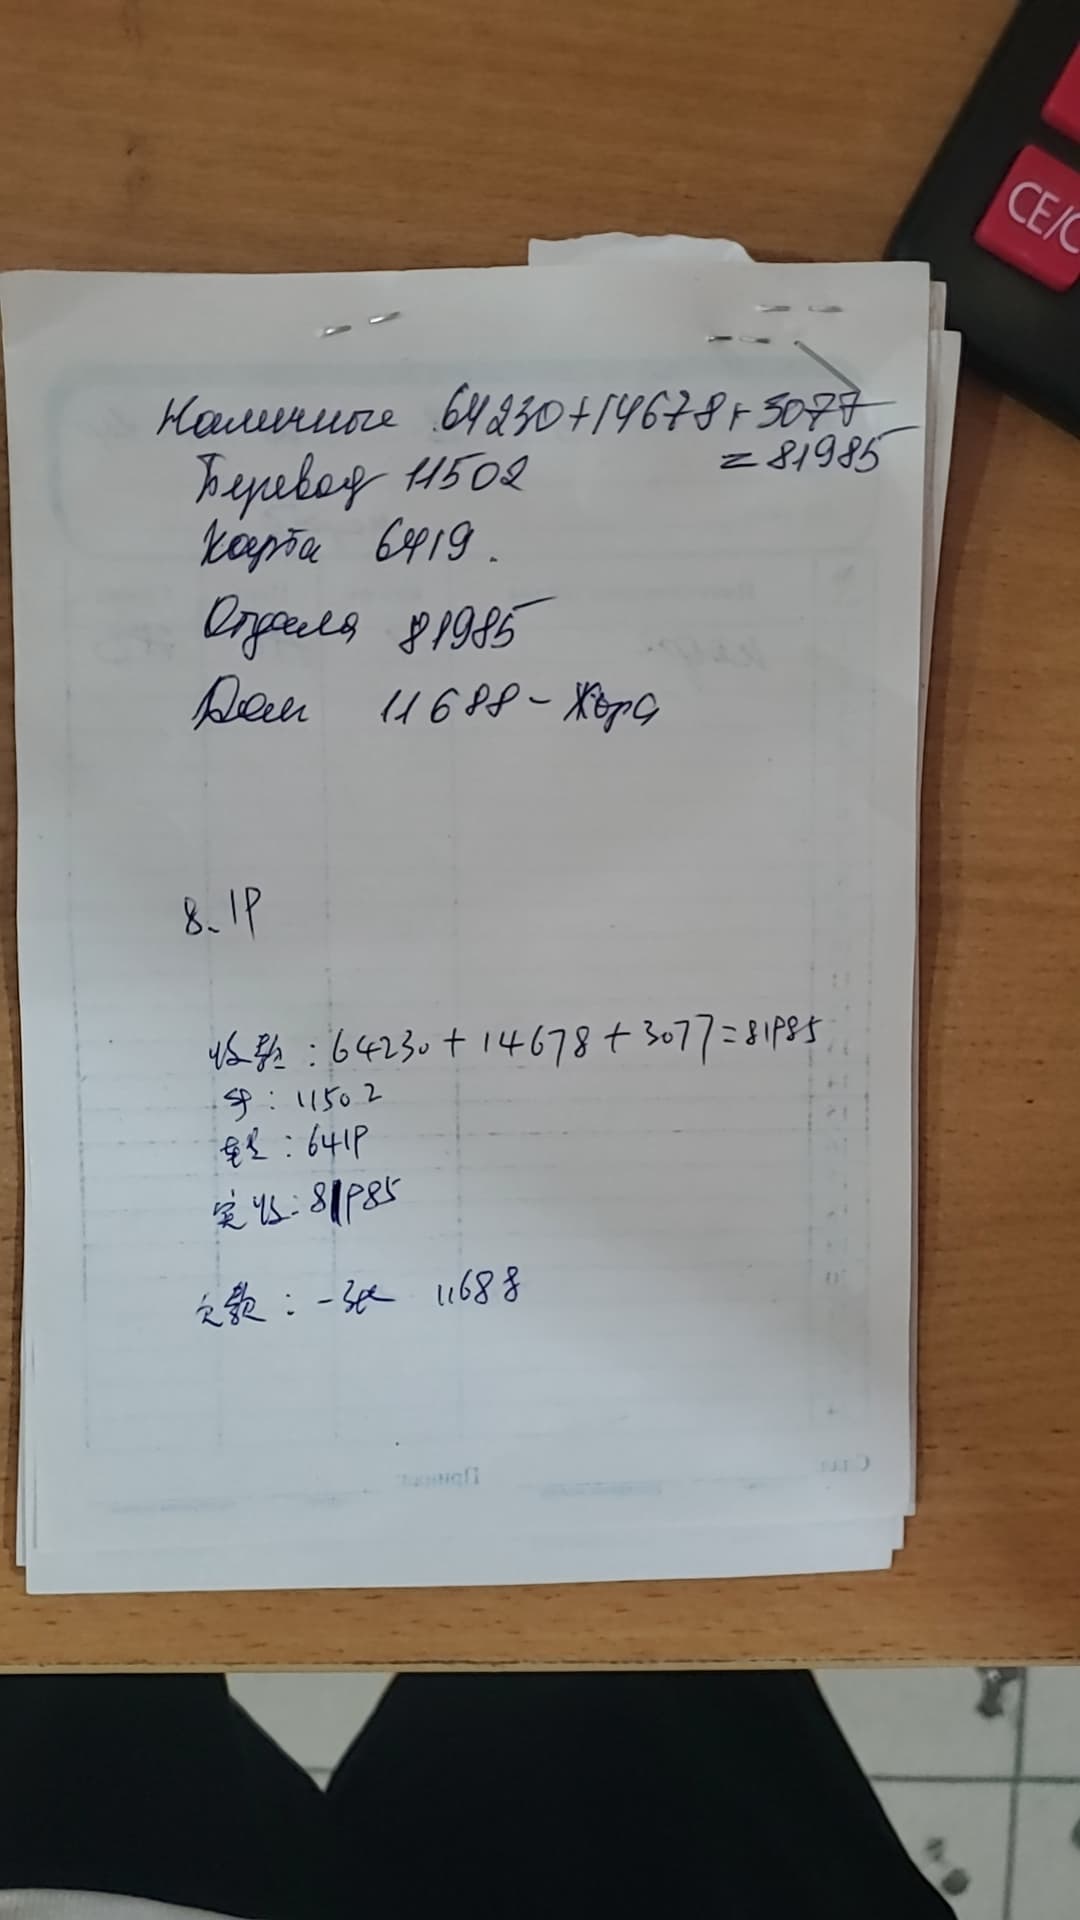 CE/C
Наличные 64230+14678+3077
=81985
Перевод 11502
Карта 6419.
Отдала 81985
Долг 11688 - Жора
8.19
收款：64230+14678+3077=81985
卡：11502
: 6419
实收：81985
欠款：一张 11688
Принял